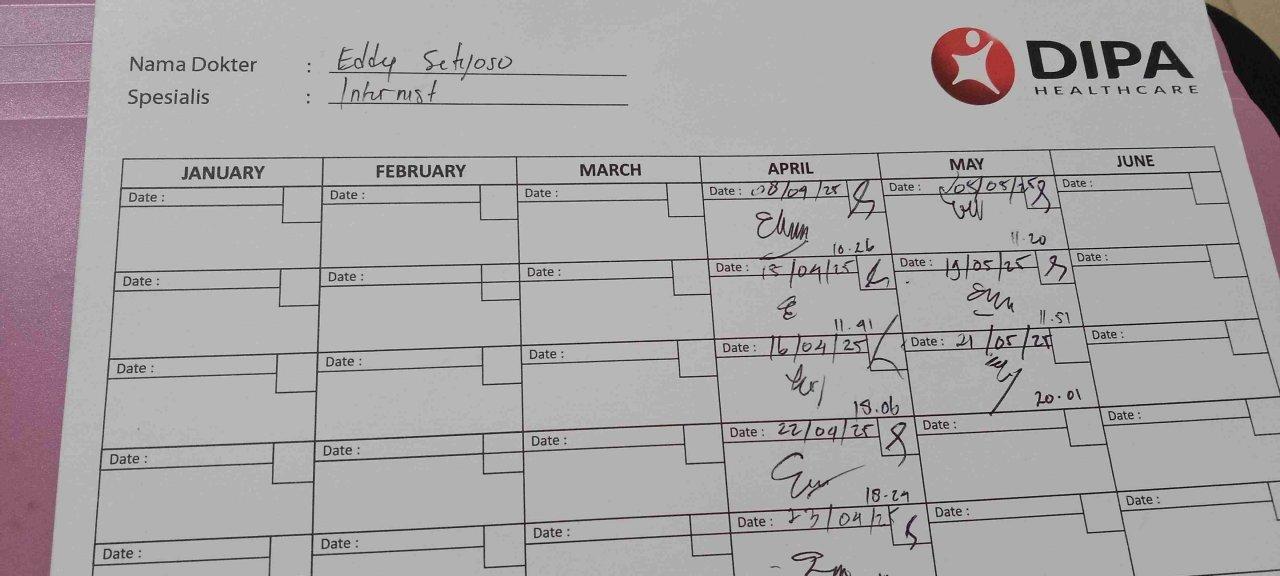 Nama Dokter : Eddy Setyoso
Spesialis : Internist
DIPA
HEALTHCARE
JANUARY FEBRUARY MARCH APRIL MAY JUNE
Date : Date : Date : Date : 08/04/25 Date : 05/05/25 Date :
10.26 11.20
Date : Date : Date : Date : 15/04/25 Date : 19/05/25 Date :
11.41 11.51
Date : Date : Date : Date : 16/04/25 Date : 21/05/25 Date :
18.06 20.01
Date : Date : Date : Date : 22/04/25 Date : Date :
18.24
Date : Date : Date : Date : 23/04/25 Date : Date :